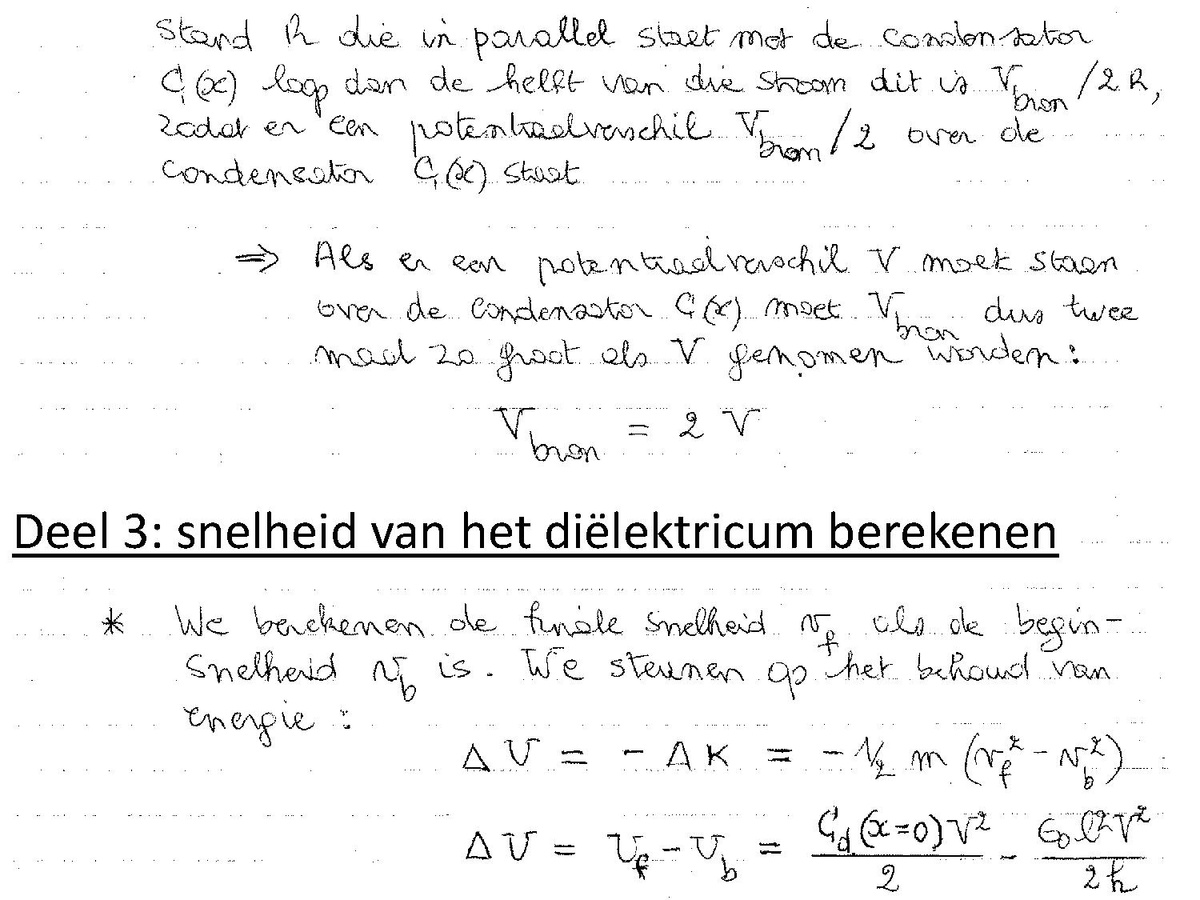 stand R die in parallel staet met de condensator
C₁(x) loop dan de helft van die stroom dit is V_bron/2R,
zodat er een potentiaalverschil V_bron/2 over de
condensator C₁(x) staat
⇒ Als er een potentiaalverschil V moet staan
over de condensator C₁(x) moet V_bron dus twee
maal zo groot als V genomen worden:
V_bron = 2 V
Deel 3: snelheid van het diëlektricum berekenen
* We berekenen de finale snelheid v_f als de begin-
snelheid v_b is. We steunen op het behoud van
energie:
ΔU = - ΔK = - 1/2 m (v_f² - v_b²)
ΔU = U_f - U_b = C_d(x=0)V²/2 - ε₀l²V²/2h